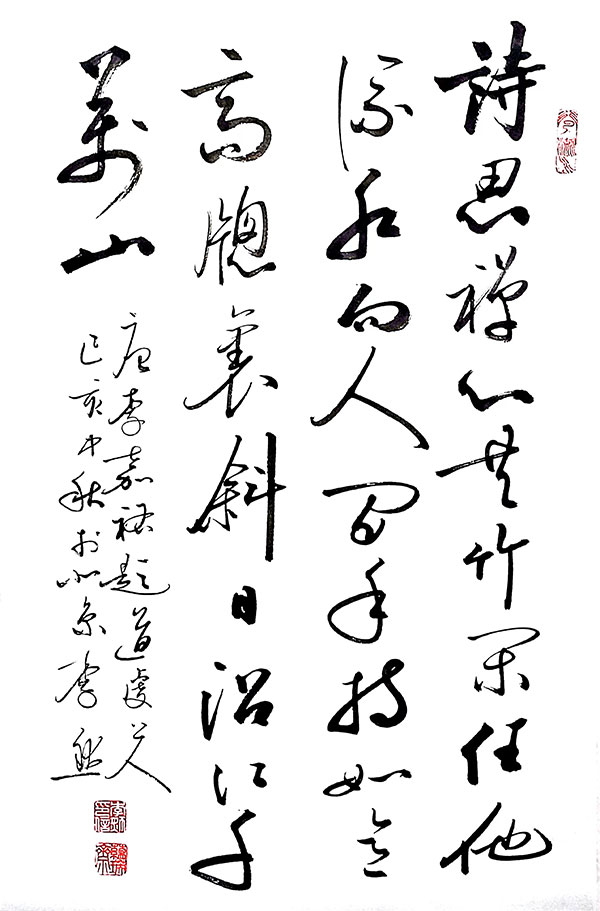 詩思禪心共竹閑任他
流水向人間手持如意
高牕裏斜日沿江千
萬山
唐李嘉祐題道虔上人
己亥中秋於北京李